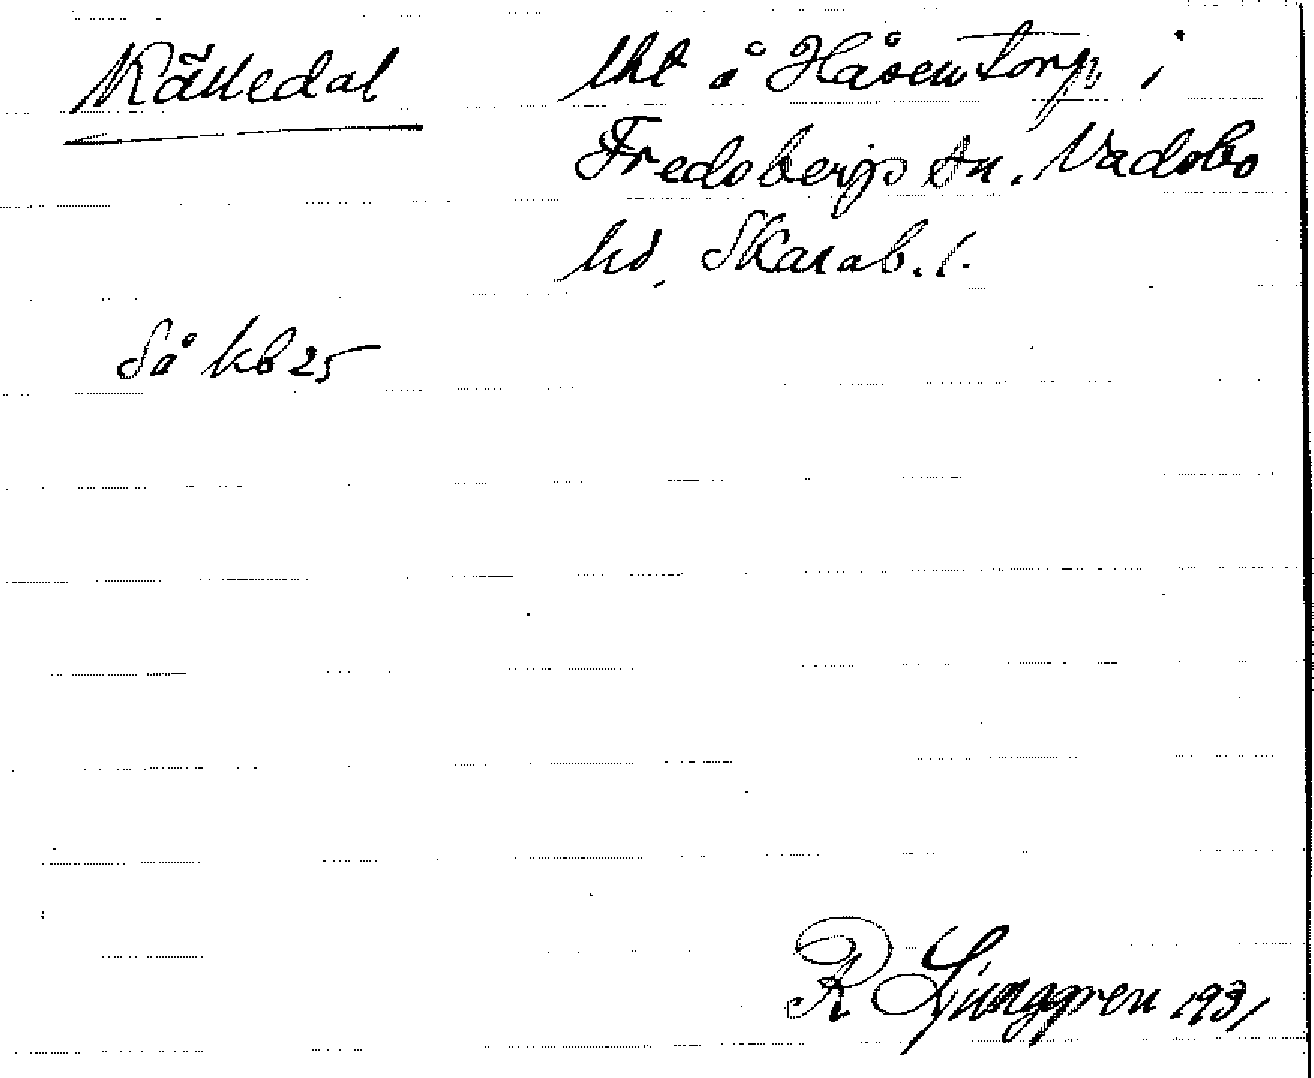 Källedal
lht å Håsentorp, i
Fredsbergs sn. Vadsbo
hd, Skarab. l.
Så kb 25
R Ljunggren 1931